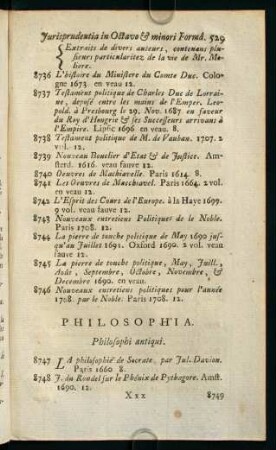 Jurisprudentia in Octavo & minori Formâ. 529
Extraits de divers auteurs, contenans plu-
sieurs particularitez de la vie de Mr. Mo-
liere.
8736 L'histoire du Ministere du Comte Duc. Colo-
gne 1673. en veau 12.
8737 Testament politique de Charles Duc de Lorrai-
ne, deposé entre les mains de l'Emper. Leo-
pold. à Presbourg le 29. Nov. 1687. en faveur
du Roy d'Hongrie & ses Successeurs arrivans à
l'Empire. Lipsic 1696 en veau. 8.
8738 Testament politique de M. de Vauban. 1707. 2
vol. 12.
8739 Nouveau Bouclier d'Etat & de Justice. Am-
sterd. 1616. veau fauve 12.
8740 Oeuvres de Machiavelle. Paris 1614. 8.
8741 Les Oeuvres de Macchiavel. Paris 1664. 2 vol.
en veau 12.
8742 L'Esprit des Cours de l'Europe. à la Haye 1699.
9 vol. veau fauve 12.
8743 Nouveaux entretiens Politiques de le Noble.
Paris 1708. 12.
8744 La pierre de touche politique de May 1690 jusq-
qu'au Juillet 1691. Oxford 1690. 2 vol. veau
fauve 12.
8745 La pierre de touche politique, May, Juill.,
Août, Septembre, Octobre, Novembre, &
Decembre 1690. en veau.
8746 Nouveaux entretiens politiques pour l'année
1708. par le Noble. Paris 1708. 12.
PHILOSOPHIA.
Philosophi antiqui.
8747 LA philosophie de Socrate, par Jul. Davion.
Paris 1660 8.
8748 J. du Rondel sur le Phénix de Pythagore. Amst.
1690. 12.
Xxx 8749